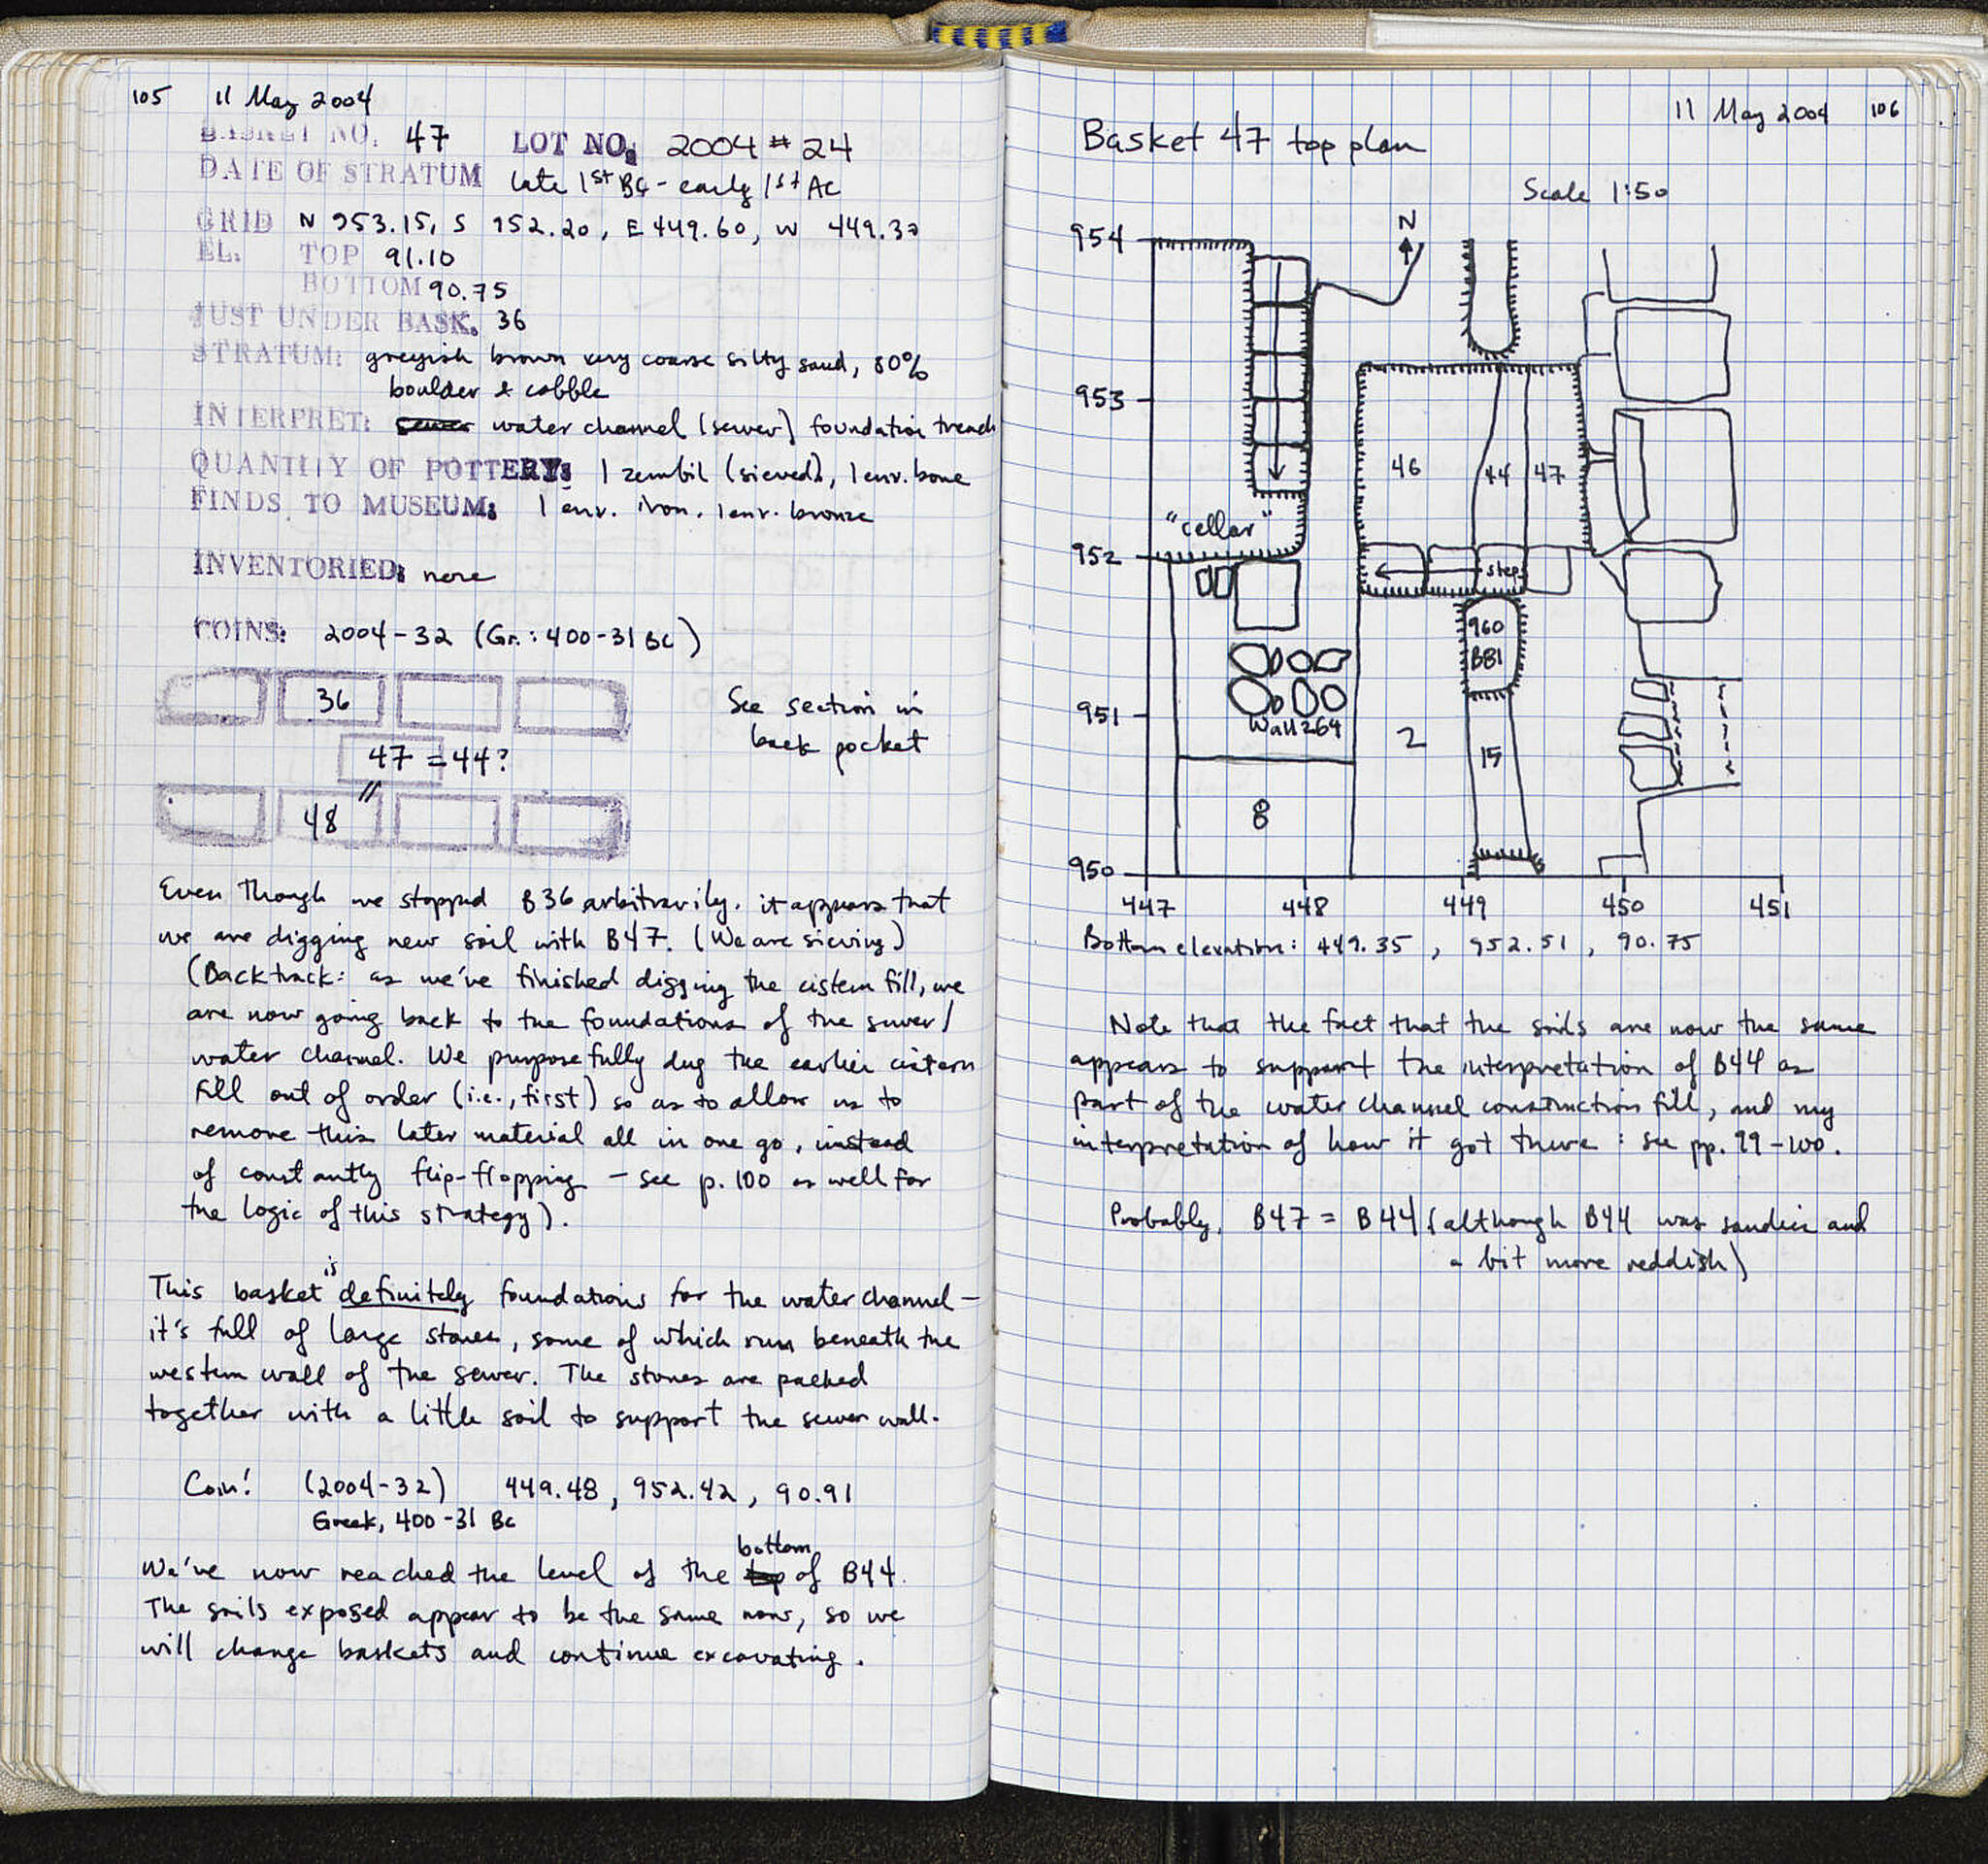 105 11 May 2004
BASKET NO. 47 LOT NO. 2004 # 24
DATE OF STRATUM late 1st BC - early 1st AC
GRID N 953.15, S 952.20, E 449.60, W 449.30
EL. TOP 91.10
BOTTOM 90.75
JUST UNDER BASK. 36
STRATUM: greyish brown very coarse silty sand, 80%
boulder & cobble
INTERPRET: water channel (sewer) foundation trench
QUANTITY OF POTTERY: 1 zembil (sieved), 1 env. bone
FINDS TO MUSEUM: 1 env. iron, 1 env. bronze
INVENTORIED: none
COINS: 2004-32 (Gr.: 400-31 BC)
36
See section in
back pocket
47 = 44?
//
48
Even though we stopped B36 arbitrarily, it appears that
we are digging new soil with B47. (We are sieving)
(Backtrack: as we've finished digging the cistern fill, we
are now going back to the foundations of the sewer/
water channel. We purposefully dug the earlier cistern
fill out of order (i.e., first) so as to allow us to
remove this later material all in one go, instead
of constantly flip-flopping - see p. 100 as well for
the logic of this strategy).
This basket is definitely foundations for the water channel -
it's full of large stones, some of which run beneath the
western wall of the sewer. The stones are packed
together with a little soil to support the sewer wall.
Coin! (2004-32) 449.48, 952.42, 90.91
Greek, 400-31 BC
We've now reached the level of the bottom of B44.
The soils exposed appear to be the same now, so we
will change baskets and continue excavating.
11 May 2004 106
Basket 47 top plan
Scale 1:50
N
954
953
46 44 47
"cellar"
952
step
960
B81
951
Wall 264
2
15
8
950
447 448 449 450 451
Bottom elevation: 449.35, 952.51, 90.75
Note that the fact that the soils are now the same
appears to support the interpretation of B44 as
part of the water channel construction fill, and my
interpretation of how it got there: see pp. 99-100.
Probably, B47 = B44 (although B44 was sandier and
a bit more reddish)